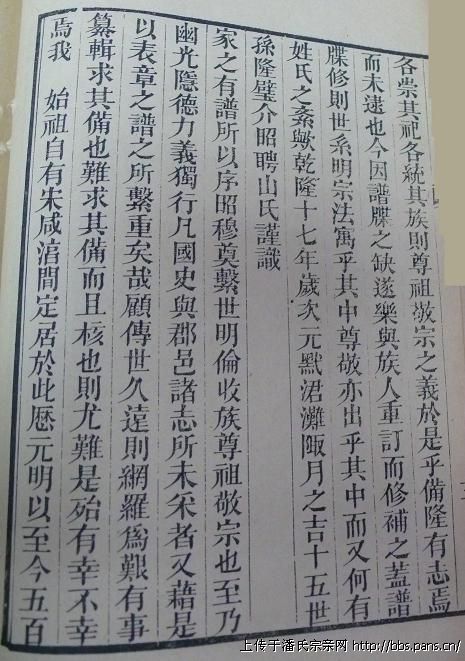 各崇其祀各統其族則尊祖敬宗之義於是乎備隆有志焉
而未逮也今因譜牒之缺遂樂與族人重訂而修補之蓋譜
牒修則世系明宗法寓乎其中尊敬亦出乎其中而又何有
姓氏之紊歟乾隆十七年歲次元黓涒灘陬月之吉十五世
孫隆璧介昭聘山氏謹識
家之有譜所以序昭穆奠繫世明倫收族尊祖敬宗也至乃
幽光隱德力義獨行凡國史與郡邑諸志所未采者又藉是
以表章之譜之所繫重矣哉顧傳世久遠則網羅為艱有事
纂輯求其備也難求其備而且核也則尤難是殆有幸不幸
焉我 始祖自有宋咸淳間定居於此歷元明以至今五百
上传于潘氏宗亲网 http://bbs.pans.cn/